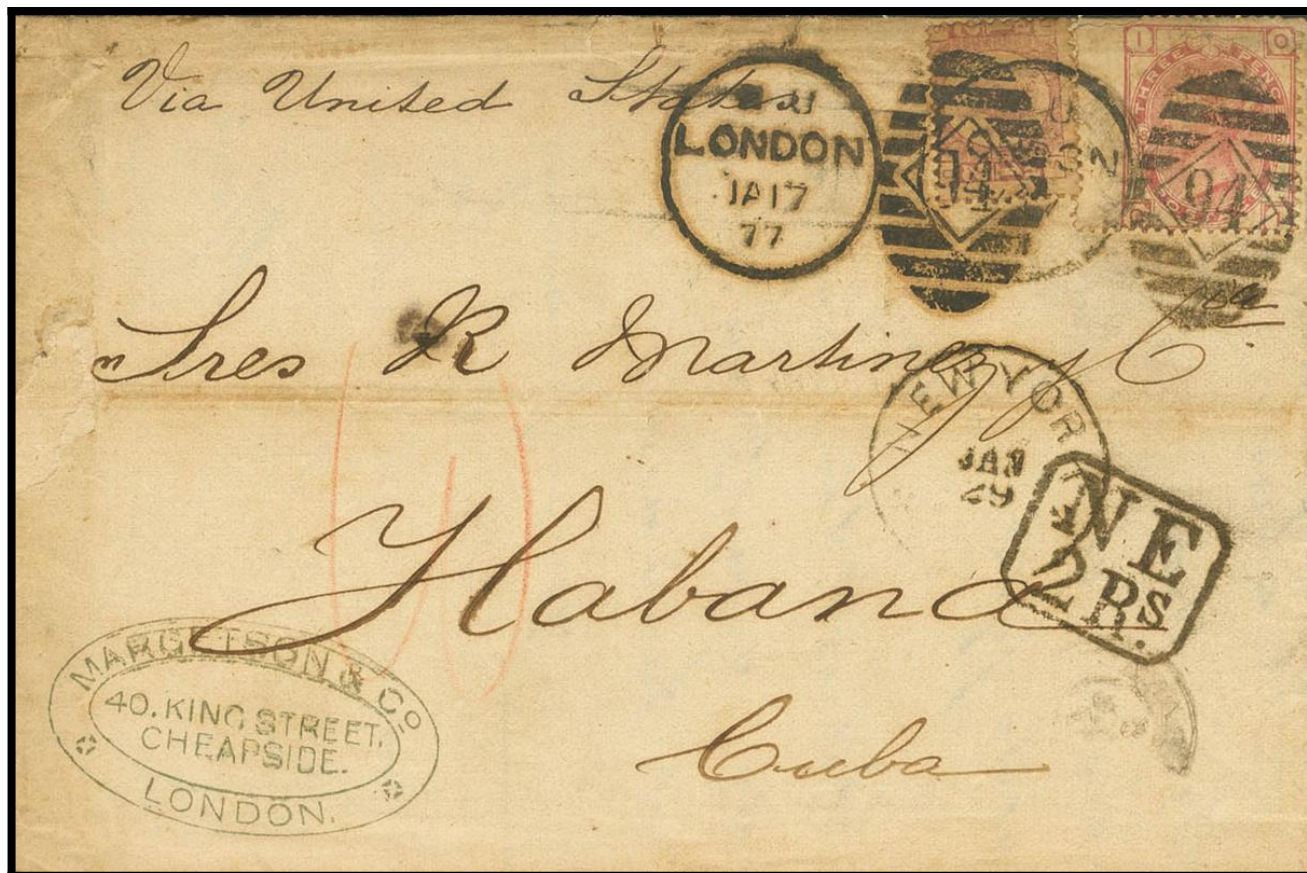 Via United States
LONDON
JA 17
77
94
94
I O
THREE PENCE
Sres R Martinez y Ca.
NEW YORK
JAN
29
NE
2 Rs.
Habana
MARGETSON & Co
40. KING STREET.
CHEAPSIDE.
LONDON.
Cuba